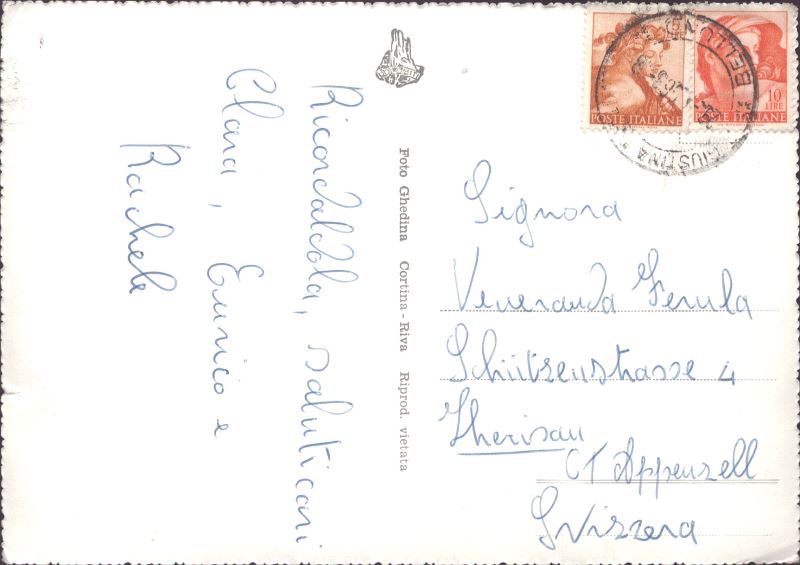 Ricordandola, saluti cari
Clara, Enrico e
Rachele
Foto Ghedina Cortina - Riva Riprod. vietata
POSTE ITALIANE
10
LIRE
POSTE ITALIANE
BELLUNO
GIUSTINA
Signora
Veneranda Ferula
Schützenstrasse 4
Herisau
CT Appenzell
Svizzera